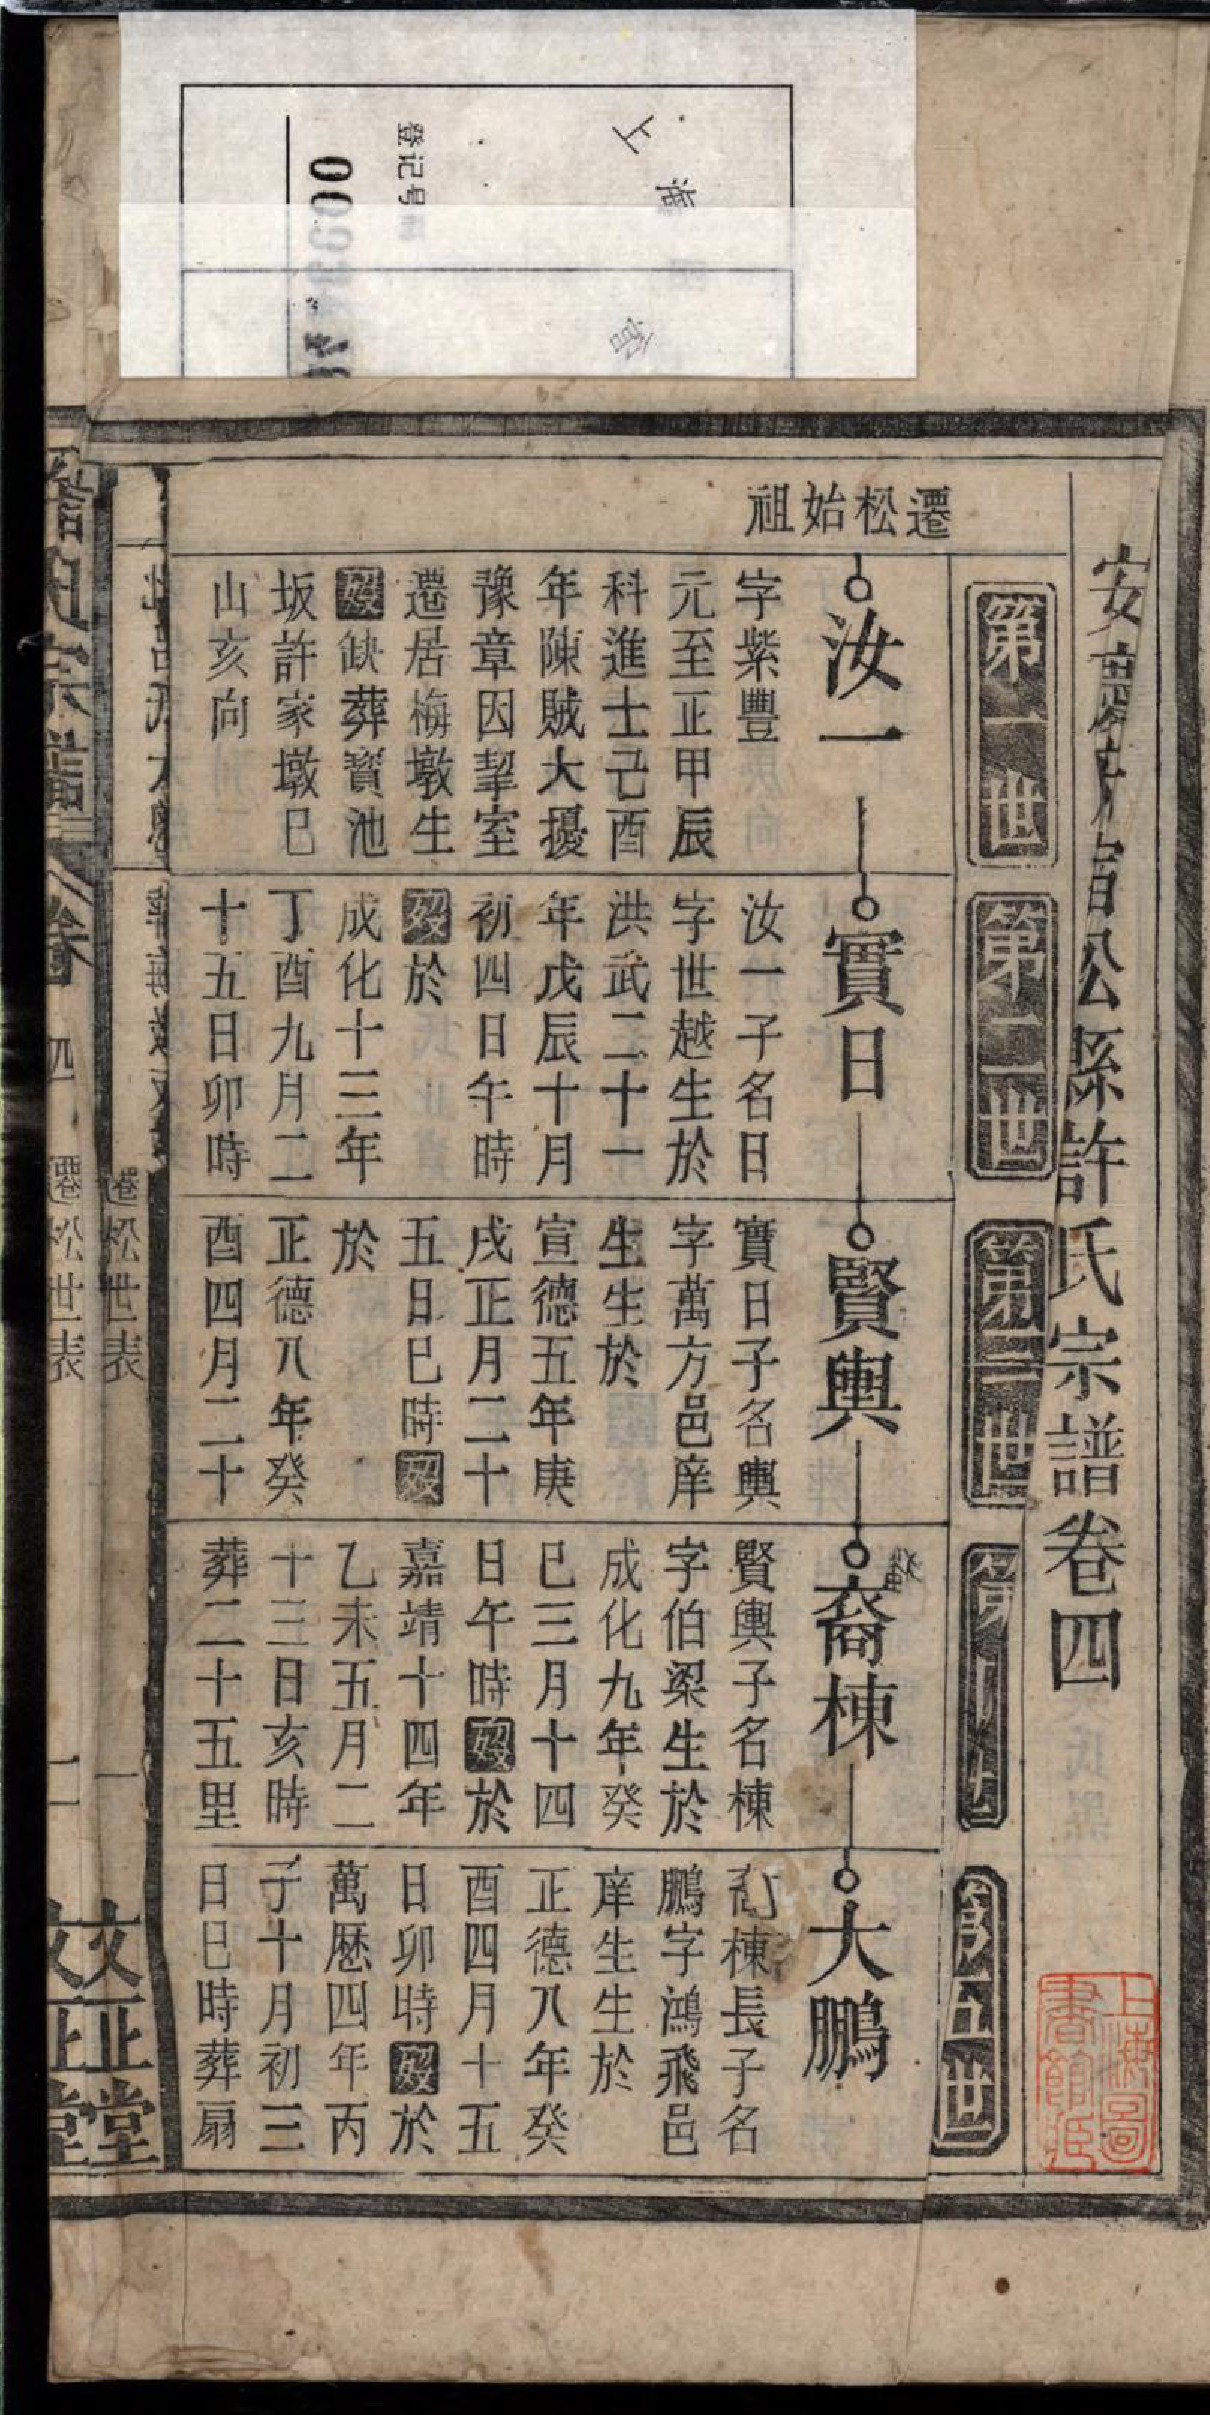 上海
登记号
安慶府宿松縣許氏宗譜卷四
第一世
第二世
第三世
第四世
第五世
遷松始祖
汝一
字紫豐
元至正甲辰
科進士己酉
年陳賊大擾
豫章因挈室
遷居梅墩生
歿缺葬寳池
坂許家墩巳
山亥向
實日
汝一子名日
字世越生於
洪武二十一
年戊辰十月
初四日午時
歿於
成化十三年
丁酉九月二
十五日卯時
賢輿
實日子名輿
字萬方邑庠
生生於
宣德五年庚
戌正月二十
五日巳時歿
於
正德八年癸
酉四月二十
裔棟
賢輿子名棟
字伯梁生於
成化九年癸
巳三月十四
日午時歿於
嘉靖十四年
乙未五月二
十三日亥時
葬二十五里
大鵬
裔棟長子名
鵬字鴻飛邑
庠生生於
正德八年癸
酉四月十五
日卯時歿於
萬厯四年丙
子十月初三
日巳時葬扇
遷松世表
一
文正堂
許氏宗譜
卷四
遷松世表
文正堂
上海圖
書館藏